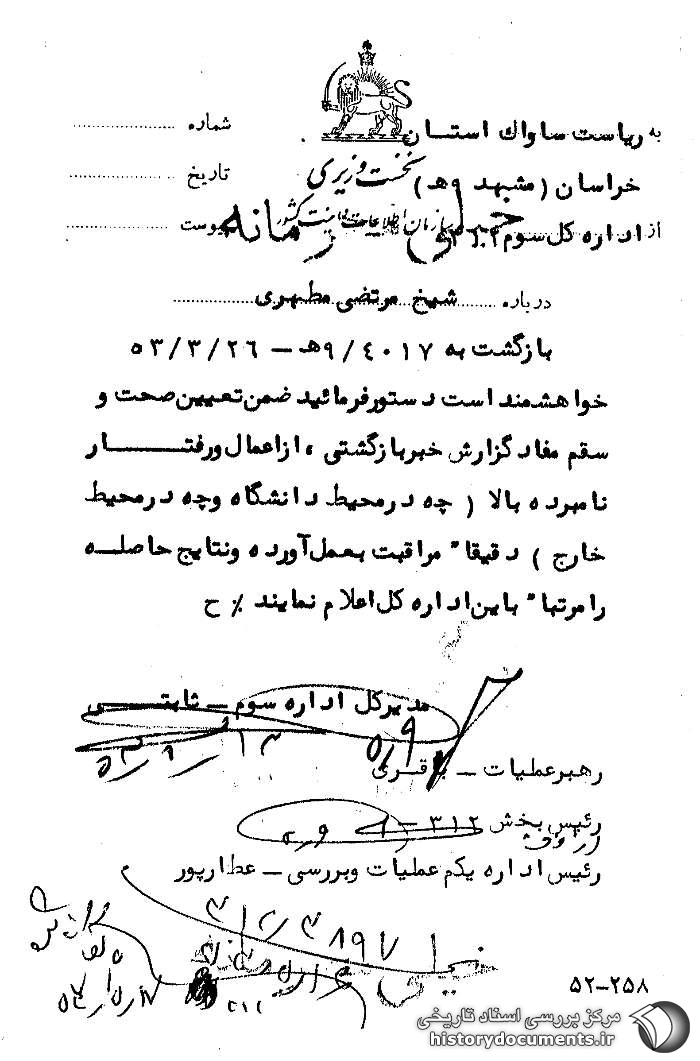 به ریاست ساواک استان
شماره
نخست وزیری
خراسان (مشهد ۹هـ)
تاریخ
سازمان اطلاعات و امنیت کشور
از اداره کل سوم ۳۱۲
پیوست
درباره شیخ مرتضی مطهری
بازگشت به ۹/۴۰۱۷هـ - ۵۳/۳/۲۶
خواهشمند است دستور فرمائید ضمن تعیین صحت و
سقم مفاد گزارش خبر بازگشتی ، از اعمال و رفتار
نامبرده بالا ( چه در محیط دانشگاه و چه در محیط
خارج ) دقیقا" مراقبت بعمل آورده و نتایج حاصله
را مرتبا" باین اداره کل اعلام نمایند٪ ح
مدیر کل اداره سوم - ثابتی
رهبر عملیات -
رئیس بخش ۳۱۲ -
رئیس اداره یکم عملیات و بررسی - عطارپور
۵۲-۲۵۸
مرکز بررسی اسناد تاریخی
historydocuments.ir